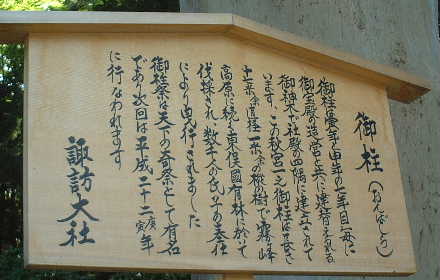 御柱（おんばしら）
御柱は寅年と申年の七年目毎に
御宝殿の造営と共に建替えられる
御神木で社殿の四隅に建立されて
います この秋宮一之御柱は長さ
十七米余直径一米余の樅の樹で霧ヶ峰
高原に続く東俣国有林に於て
伐採され数千人の氏子の奉仕
により曳行されました
御柱祭は天下の奇祭として有名
であり次回は平成二十二庚寅年
に行なわれます
諏訪大社